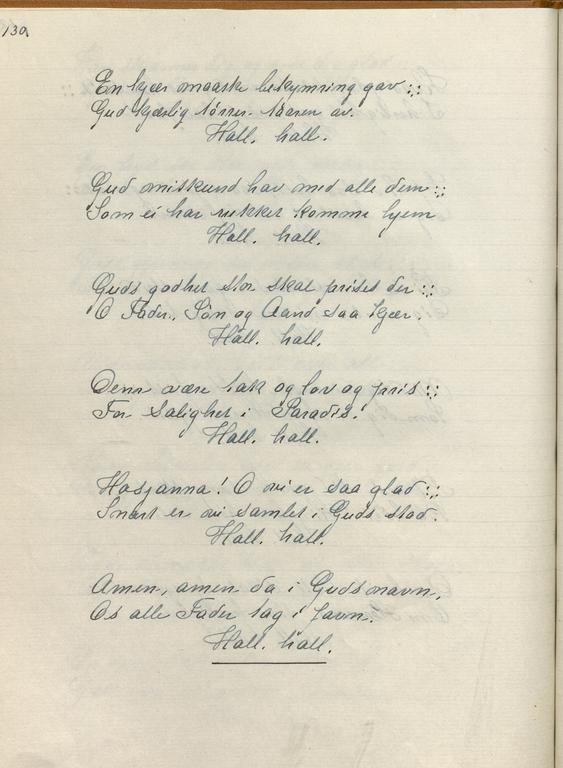 130.
En kjær maaske bekymring gav :,:
Gud kjærlig tørrer taaren av.
Hall. hall.
Gud miskund hav med alle dem :,:
Som ei har rukket komme hjem
Hall. hall.
Guds godhet stor skal prises der :,:
O Fader, Søn og Aand saa kjær.
Hall. hall.
Denn være tak og lov og pris :,:
For Salighet i Paradis!
Hall. hall.
Hosianna! O vi er saa glad :,:
Snart er vi samlet i Guds stad.
Hall. hall.
Amen, amen da i Guds navn,
Os alle Fader tag i favn.
Hall. hall.